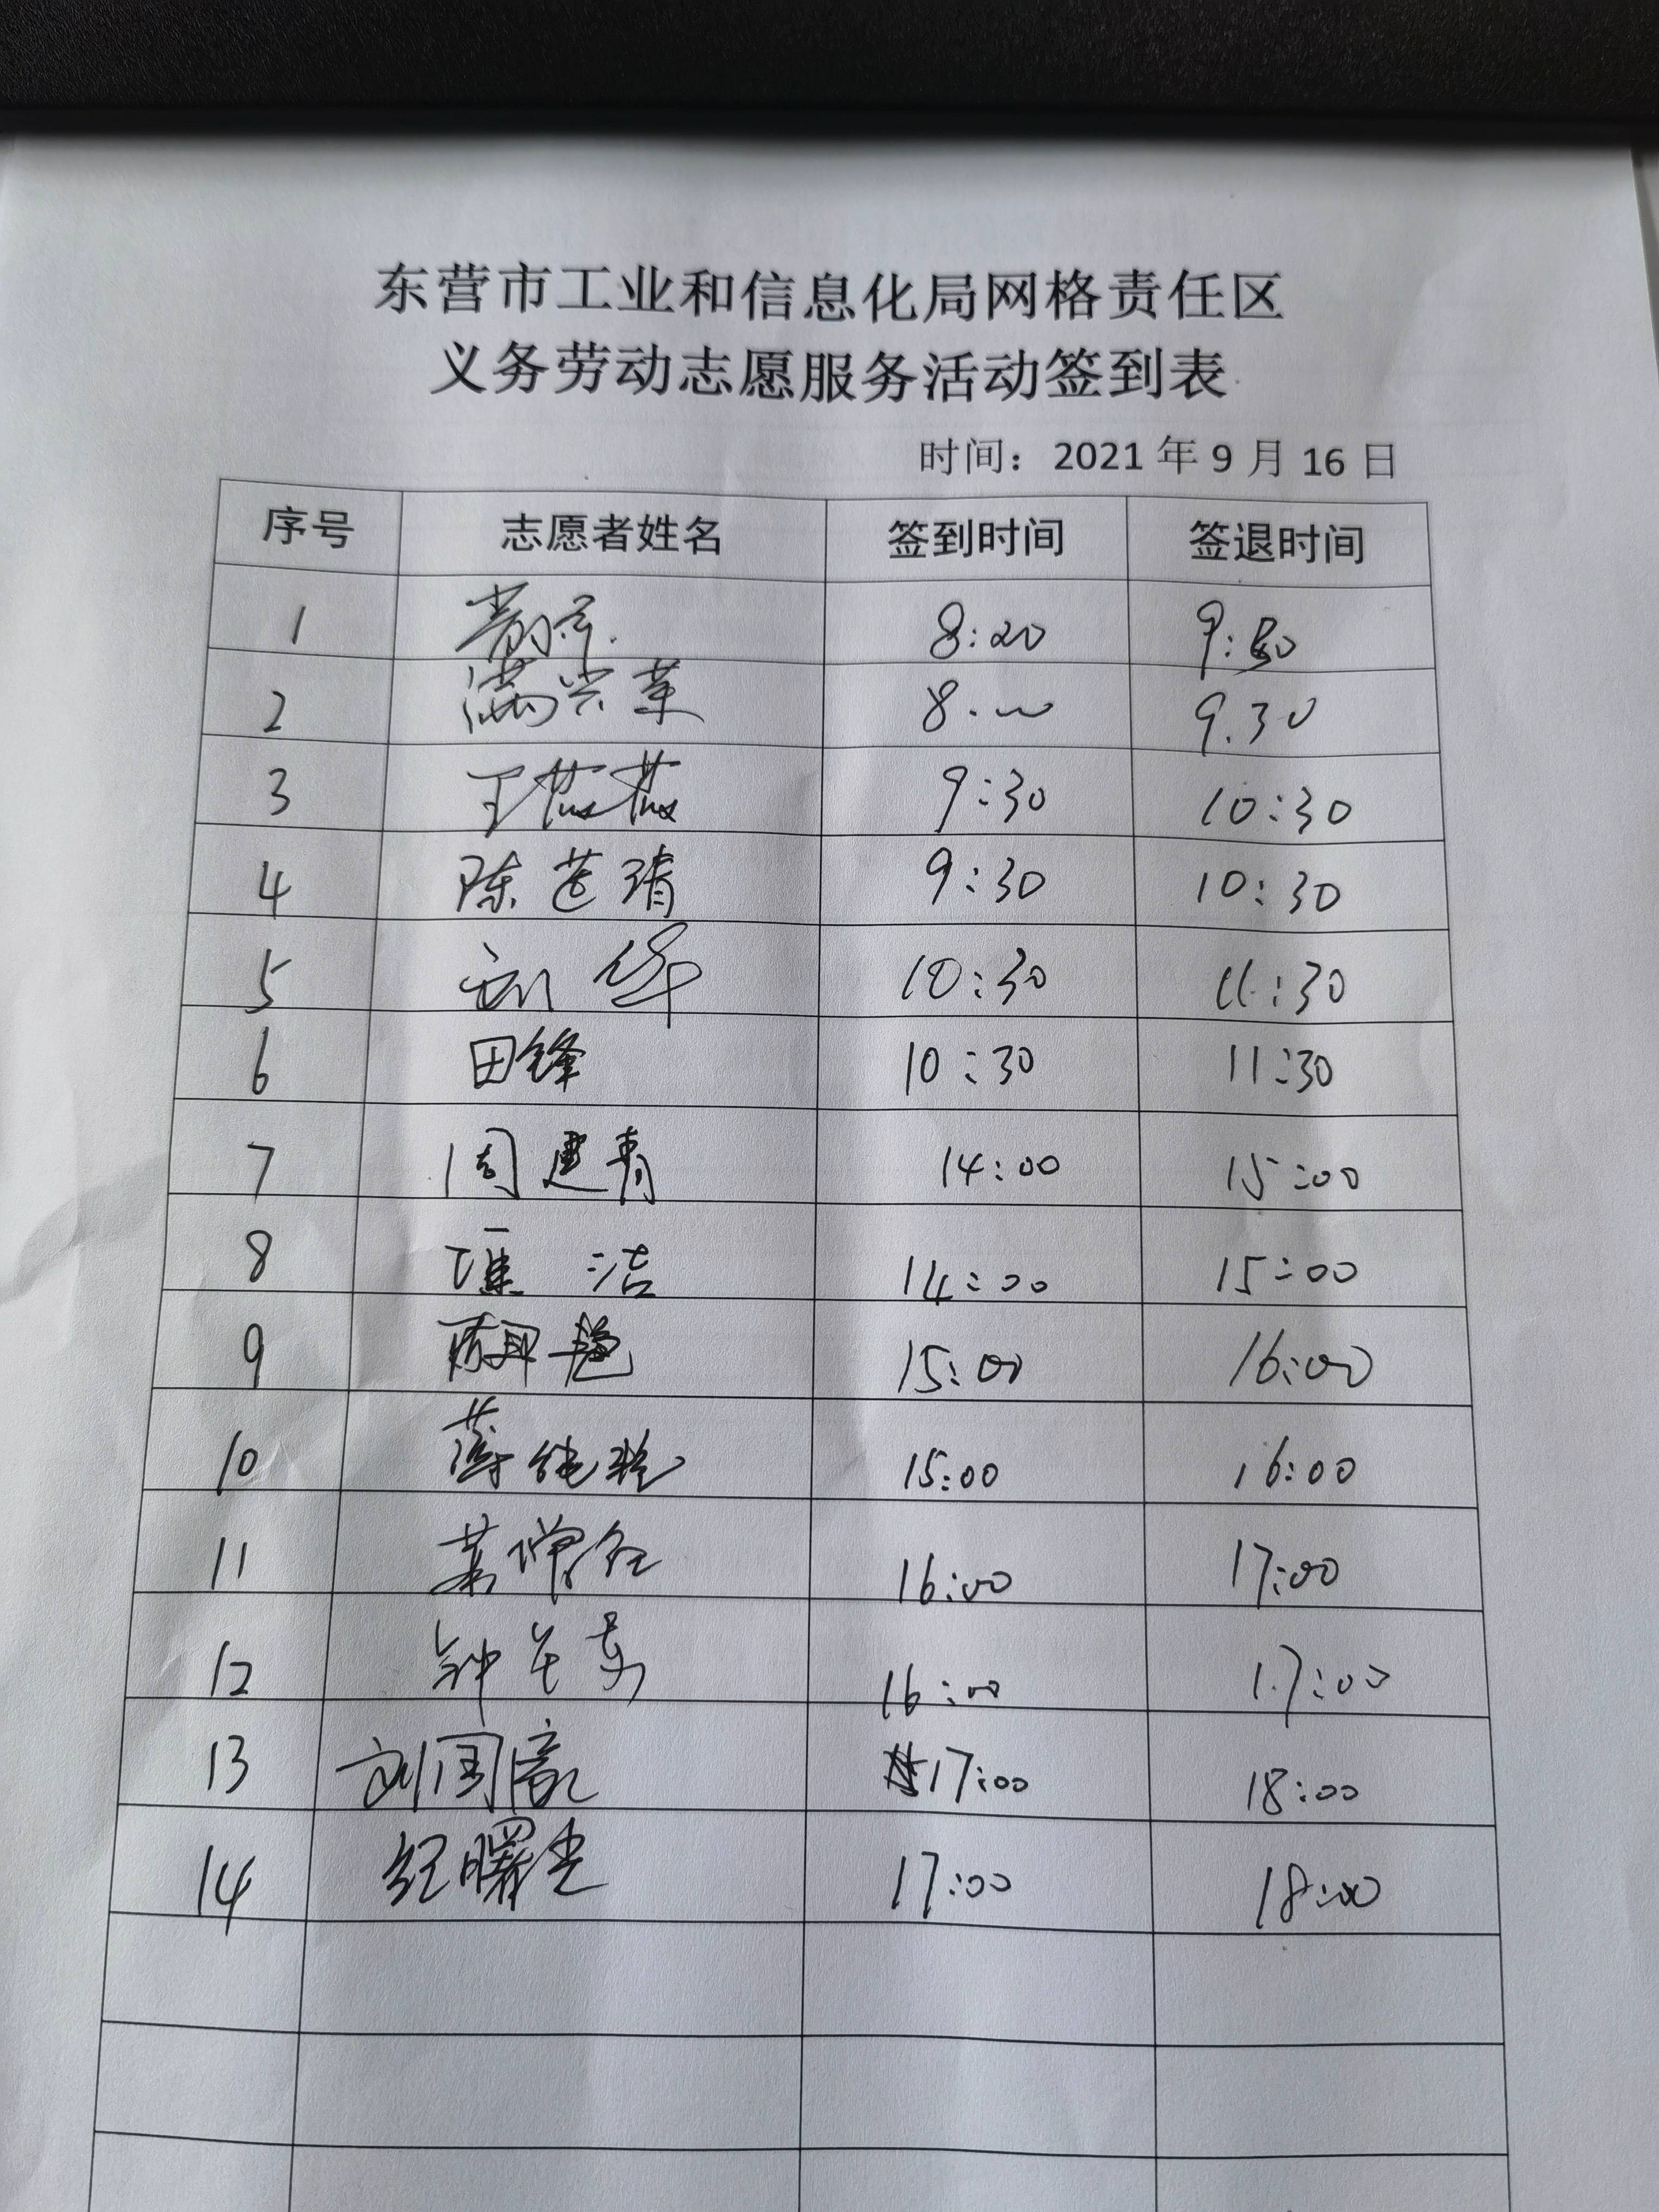 东营市工业和信息化局网格责任区
义务劳动志愿服务活动签到表
时间：2021年9月16日
序号 志愿者姓名 签到时间 签退时间
1 8:20
2 满兴苹 9.30
3 王燕燕 9:30 10:30
4 陈 9:30 10:30
5 刘华 10:30 11:30
6 田锋 10:30 11:30
7 周建青 14:00 15:00
8 谯洁 14:00 15:00
9 15:00 16:00
10 15:00 16:00
11 16:00 17:00
12 钟 16:00 17:00
13 刘国 17:00 18:00
14 纪曙光 17:00 18:00